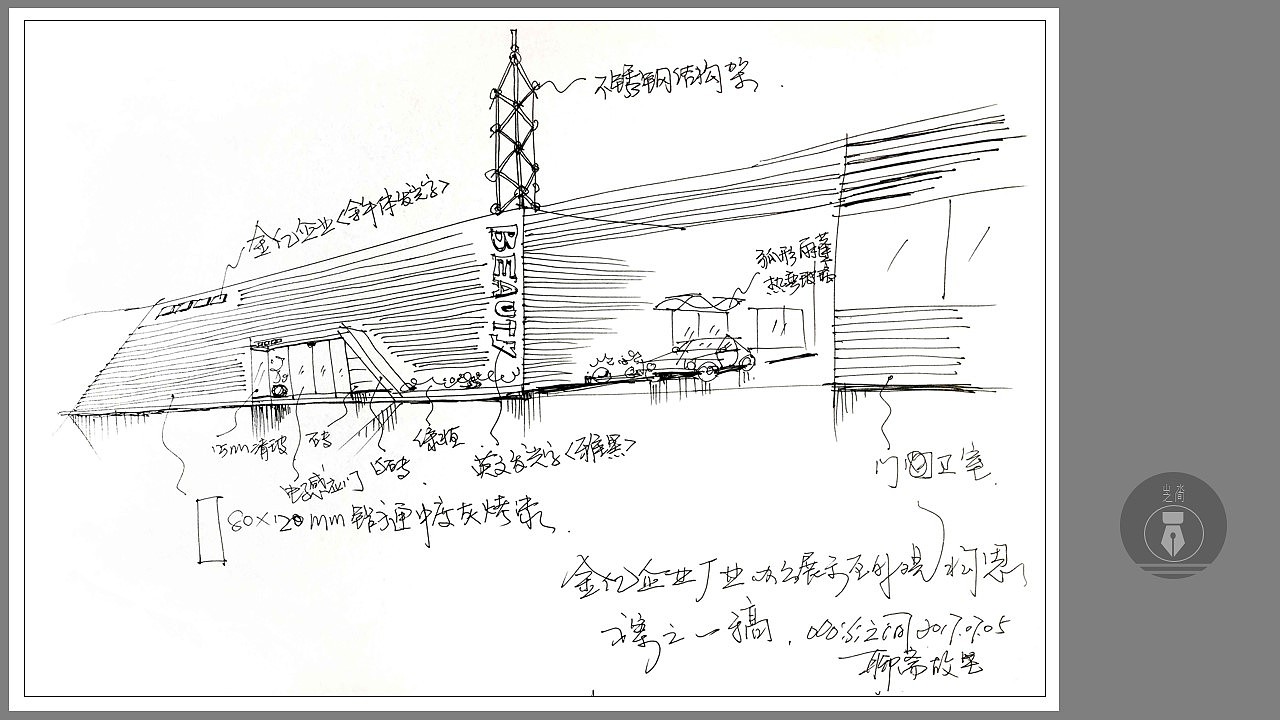 不锈钢结构架
金亿企业<金牛体发光字>
BEAUTY
弧形雨蓬
热弯玻璃
15mm清玻
石砖
绿植
电子感应门
石砖
英文发光字<雅黑>
门卫室
80×120mm铝方通中度灰烤漆
金亿企业厂业办公展示区外观构思
方案之一稿. 2017.07.05
聊斋故里